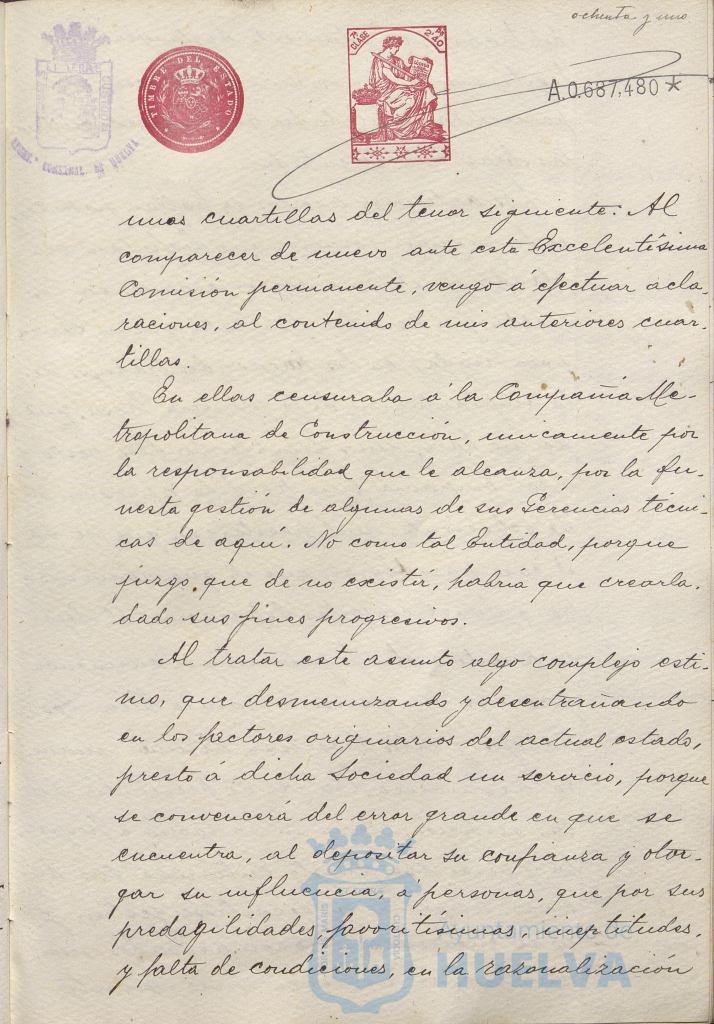 ochenta y uno
TIMBRE DEL ESTADO
7ª CLASE
2'40
A.0.687,480 *
DE HUELVA
unas cuartillas del tenor siguiente: Al
comparecer de nuevo ante esta Excelentísima
Comisión permanente, vengo á efectuar acla-
raciones, al contenido de mis anteriores cuar-
tillas.
En ellas censuraba á la Compañia Me-
tropolitana de Construcción, unicamente por
la responsabilidad que le alcanza, por la fu-
nesta gestión de algunas de sus Gerencias técni-
cas de aquí. No como tal Entidad, porque
juzgo que de no existir, habría que crearla,
dado sus fines progresivos.
Al tratar este asunto algo complejo esti-
mo, que desmenuzando y desentrañando
en los factores originarios del actual estado,
presto á dicha Sociedad un servicio, porque
se convencerá del error grande en que se
encuentra, al depositar su confianza y otor-
gar su influencia, á personas, que por sus
predagilidades, favoritísimas, ineptitudes,
y falta de condiciones, en la razonalización
Ayuntamiento de
HUELVA